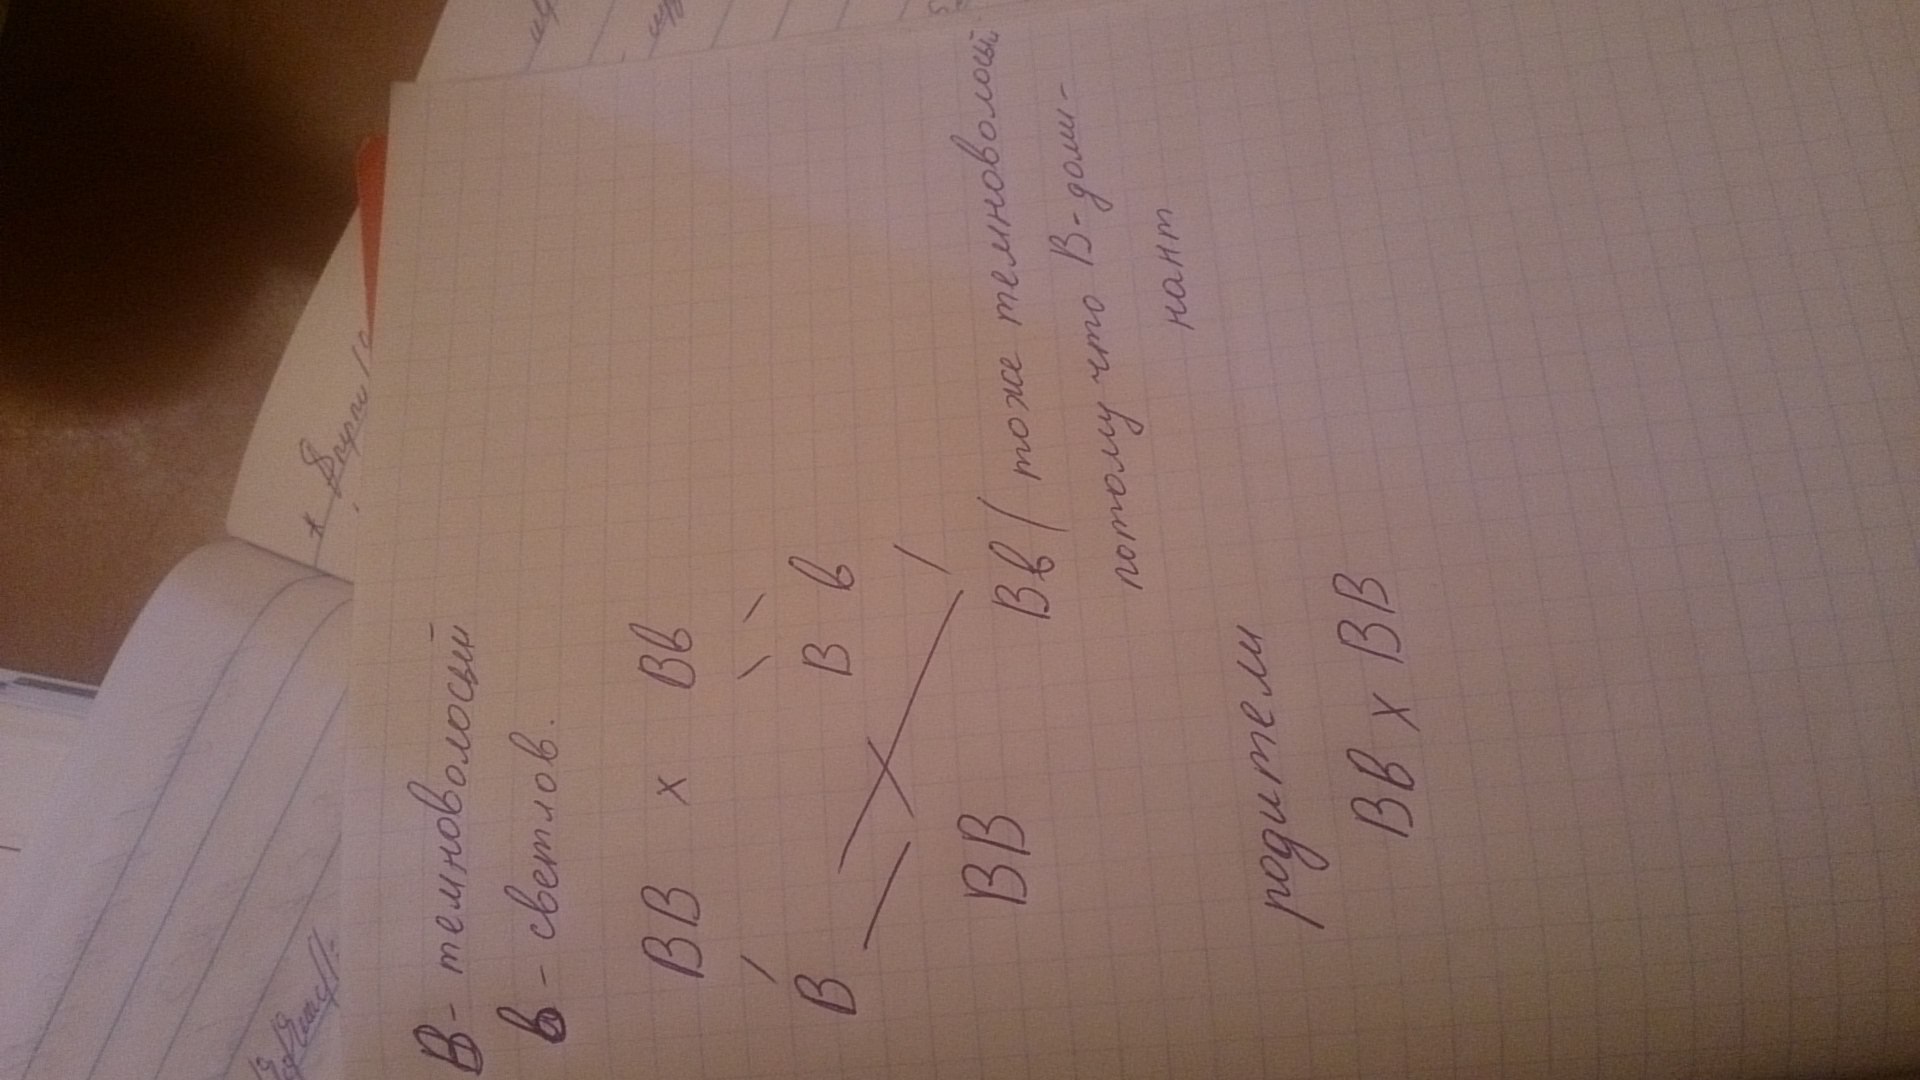 В - темноволосый
в - светлов.
ВВ х Вв
В В в
ВВ Вв ( тоже темноволосый
потому что В - доми-
нант
родители
Вв х ВВ